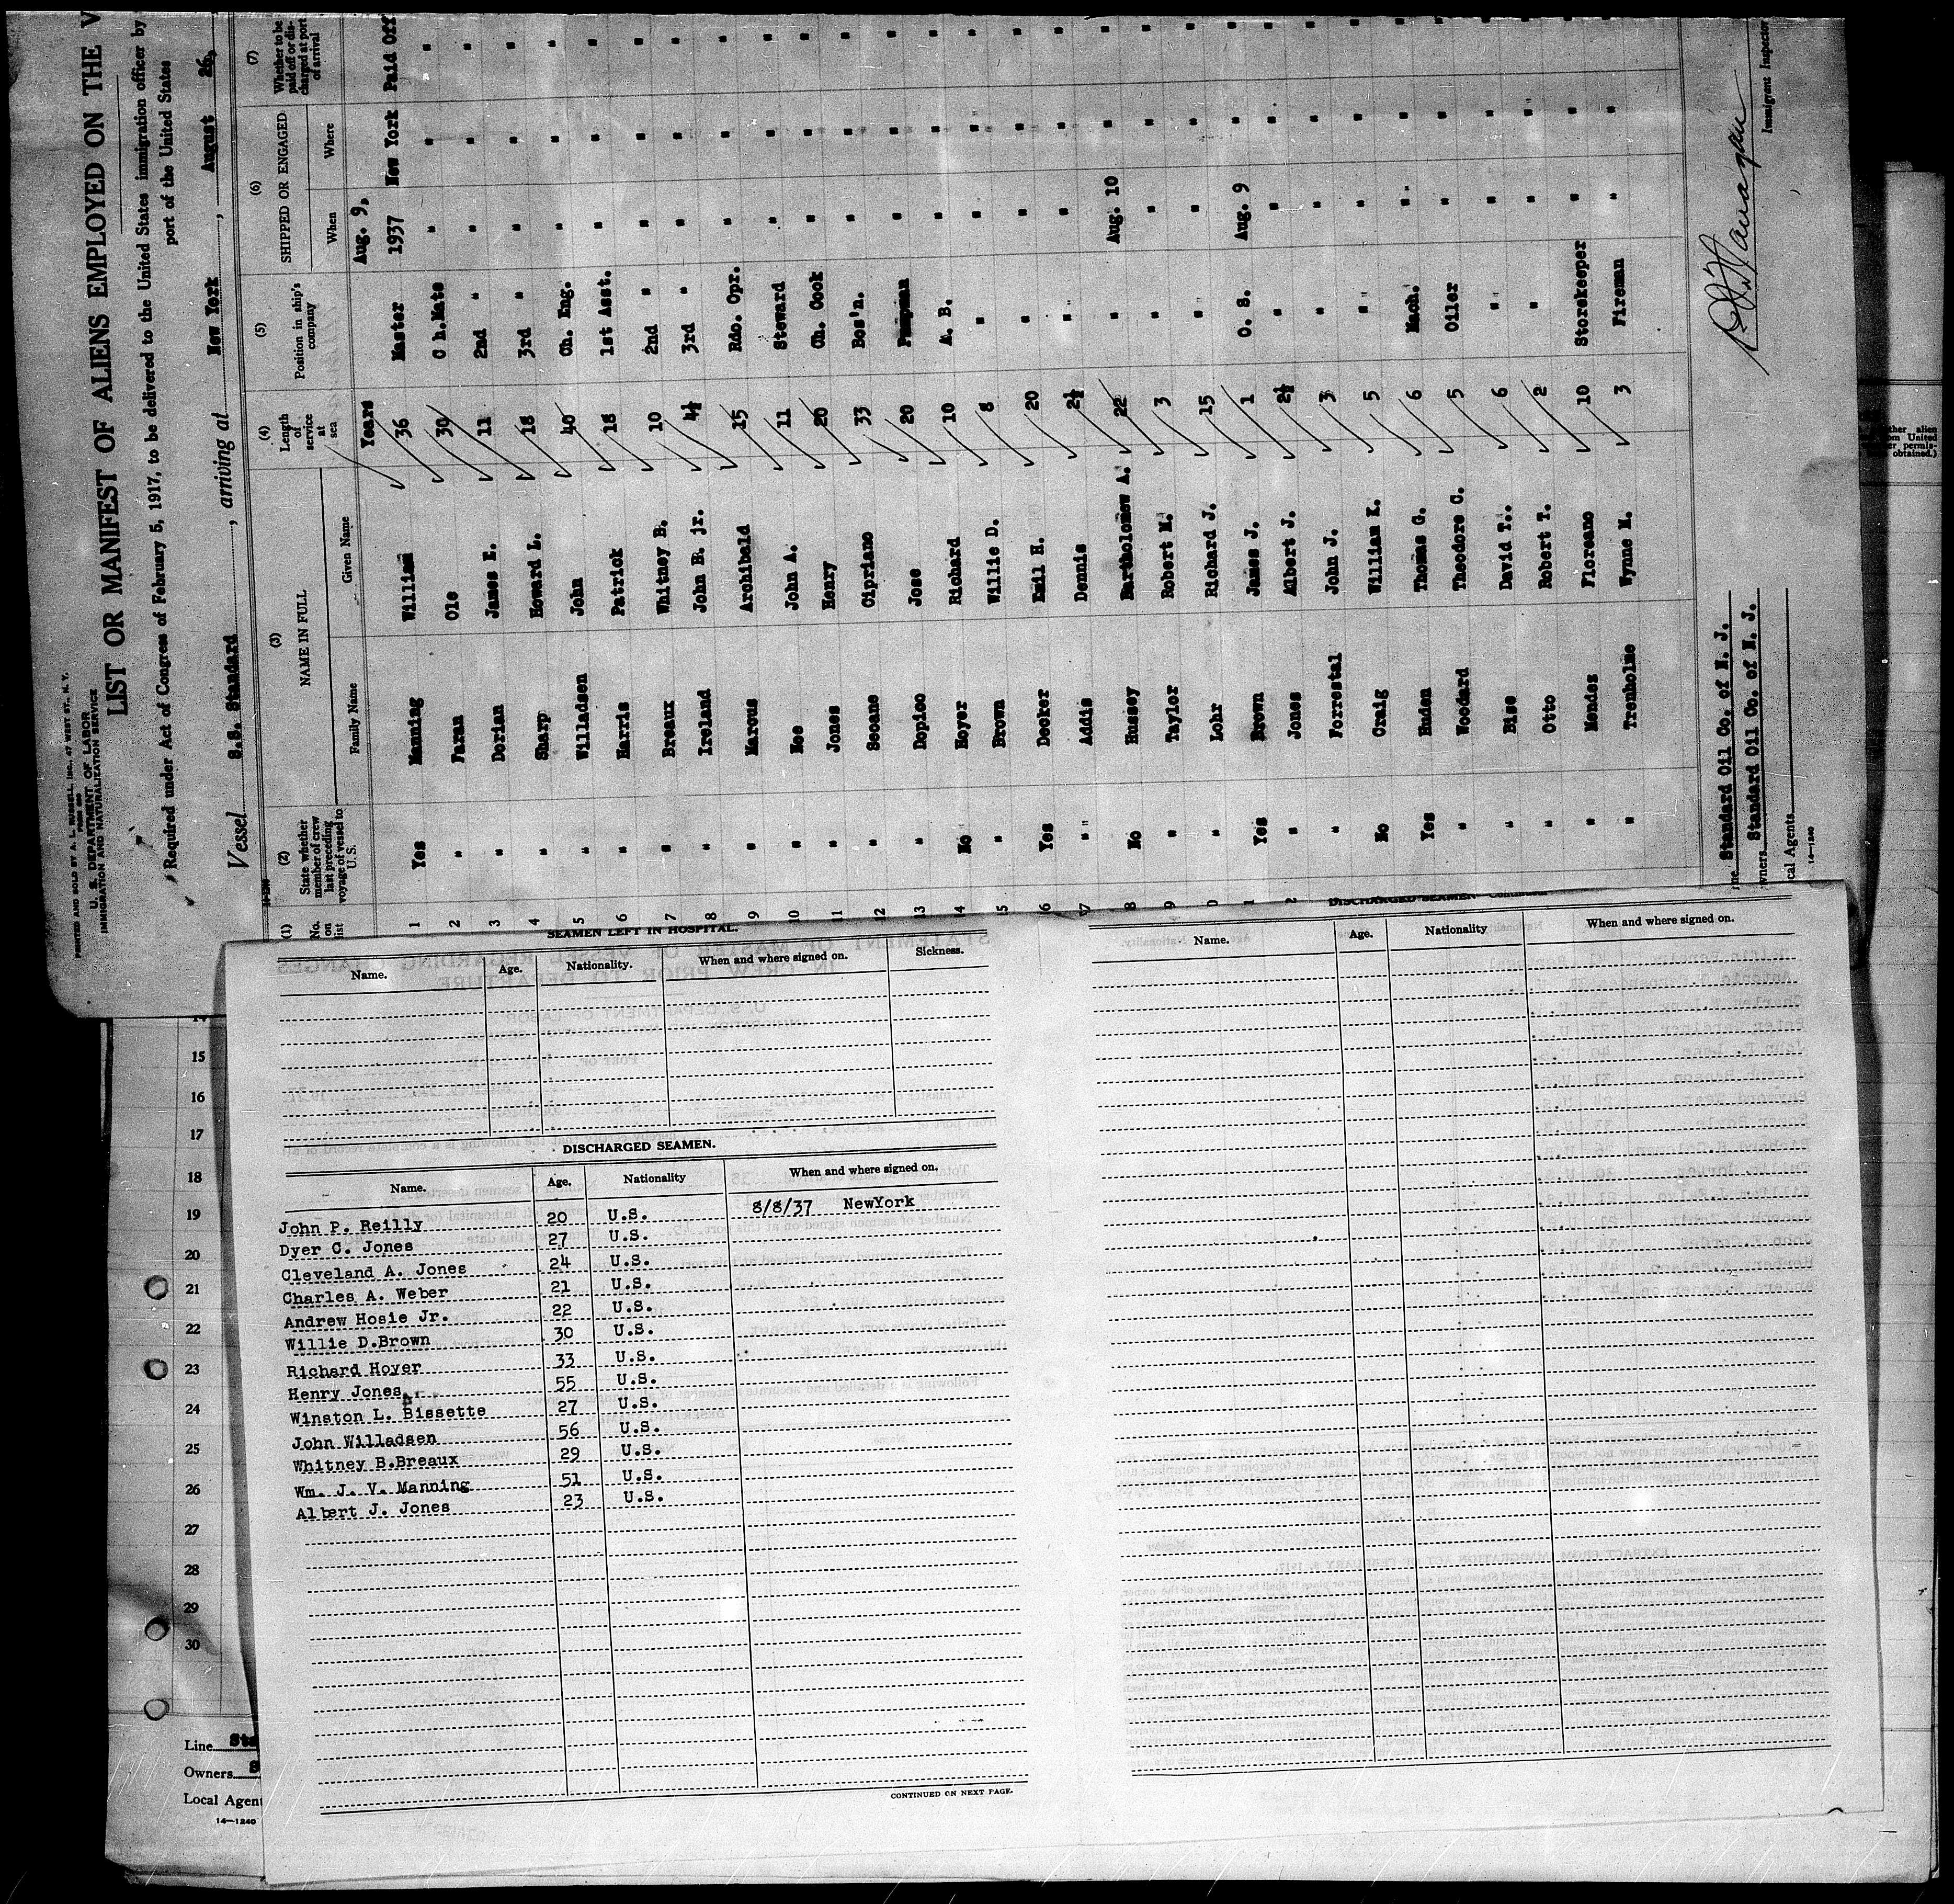 PRINTED AND SOLD BY A. L. RUSSELL, Inc., 47 WEST ST., N. Y.
U. S. DEPARTMENT OF LABOR
IMMIGRATION AND NATURALIZATION SERVICE
LIST OR MANIFEST OF ALIENS EMPLOYED ON THE V
Required under Act of Congress of February 5, 1917, to be delivered to the United States immigration officer by
port of the United States
Vessel S.S. Standard, arriving at New York, August 26,
(1) (2) (3) (4) (5) (6) (7)
No. on list State whether member of crew last preceding voyage of vessel to U.S. NAME IN FULL Length of service at sea Position in ship's company SHIPPED OR ENGAGED Whether to be paid off or discharged at port of arrival
Family Name Given Name When Where
Years Aug. 9,
1 Yes Manning William 36 Master 1937 New York Paid Off
2 " Faran Ole 30 Ch.Mate " " "
3 " Dorian James E. 11 2nd " " " "
4 " Sharp Howard L. 18 3rd " " " "
5 " Willadsen John 40 Ch. Eng. " " "
6 " Harris Patrick 18 1st Asst. " " "
7 " Breaux Whitney B. 10 2nd " " " "
8 " Ireland John B. jr. 4½ 3rd " " " "
9 " Marcus Archibald 15 Rdo. Opr. " " "
10 " Kee John A. 11 Steward " " "
11 " Jones Henry 20 Ch. Cook " " "
12 " Seoane Cipriano 33 Bos'n. " " "
13 " Dopico Jose 20 Pumpman " " "
14 No Hoyer Richard 10 A. B. " " "
15 " Brown Willie D. 8 " " " "
16 Yes Decker Emil H. 20 " " " "
17 " Addis Dennis 2½ " " " "
8 No Hussey Bartholomew A. 22 " Aug. 10 " "
9 " Taylor Robert M. 3 " " " "
0 " Lohr Richard J. 15 " " " "
1 Yes Brown James J. 1 O. S. Aug. 9 " "
2 " Jones Albert J. 2½ " " " "
" Forrestal John J. 3 " " " "
No Craig William K. 5 " " " "
Yes Huden Thomas G. 6 Mach. " " "
" Woodard Theodore C. 5 Oiler " " "
" Bise David T. 6 " " " "
" Otto Robert T. 2 " " " "
" Mendez Floreano 10 Storekeeper " " "
" Trenholme Wynne M. 3 Fireman " " "
ne Standard Oil Co. of N. J.
wners Standard Oil Co. of N. J.
cal Agents
14—1240
Immigrant Inspector
ther alien
om United
er permis-
obtained.)
SEAMEN LEFT IN HOSPITAL.
Name. Age. Nationality. When and where signed on. Sickness.
DISCHARGED SEAMEN.
Name. Age. Nationality When and where signed on.
John P. Reilly 20 U.S. 8/8/37 NewYork
Dyer C. Jones 27 U.S.
Cleveland A. Jones 24 U.S.
Charles A. Weber 21 U.S.
Andrew Hosie Jr. 22 U.S.
Willie D.Brown 30 U.S.
Richard Hoyer 33 U.S.
Henry Jones 55 U.S.
Winston L. Bissette 27 U.S.
John Willadsen 56 U.S.
Whitney B.Breaux 29 U.S.
Wm. J. V. Manning 51 U.S.
Albert J. Jones 23 U.S.
CONTINUED ON NEXT PAGE.
DISCHARGED SEAMEN—Continued
Name. Age. Nationality When and where signed on.
14
15
16
17
18
19
20
21
22
23
24
25
26
27
28
29
30
Line Sta
Owners S
Local Agent
14—1240